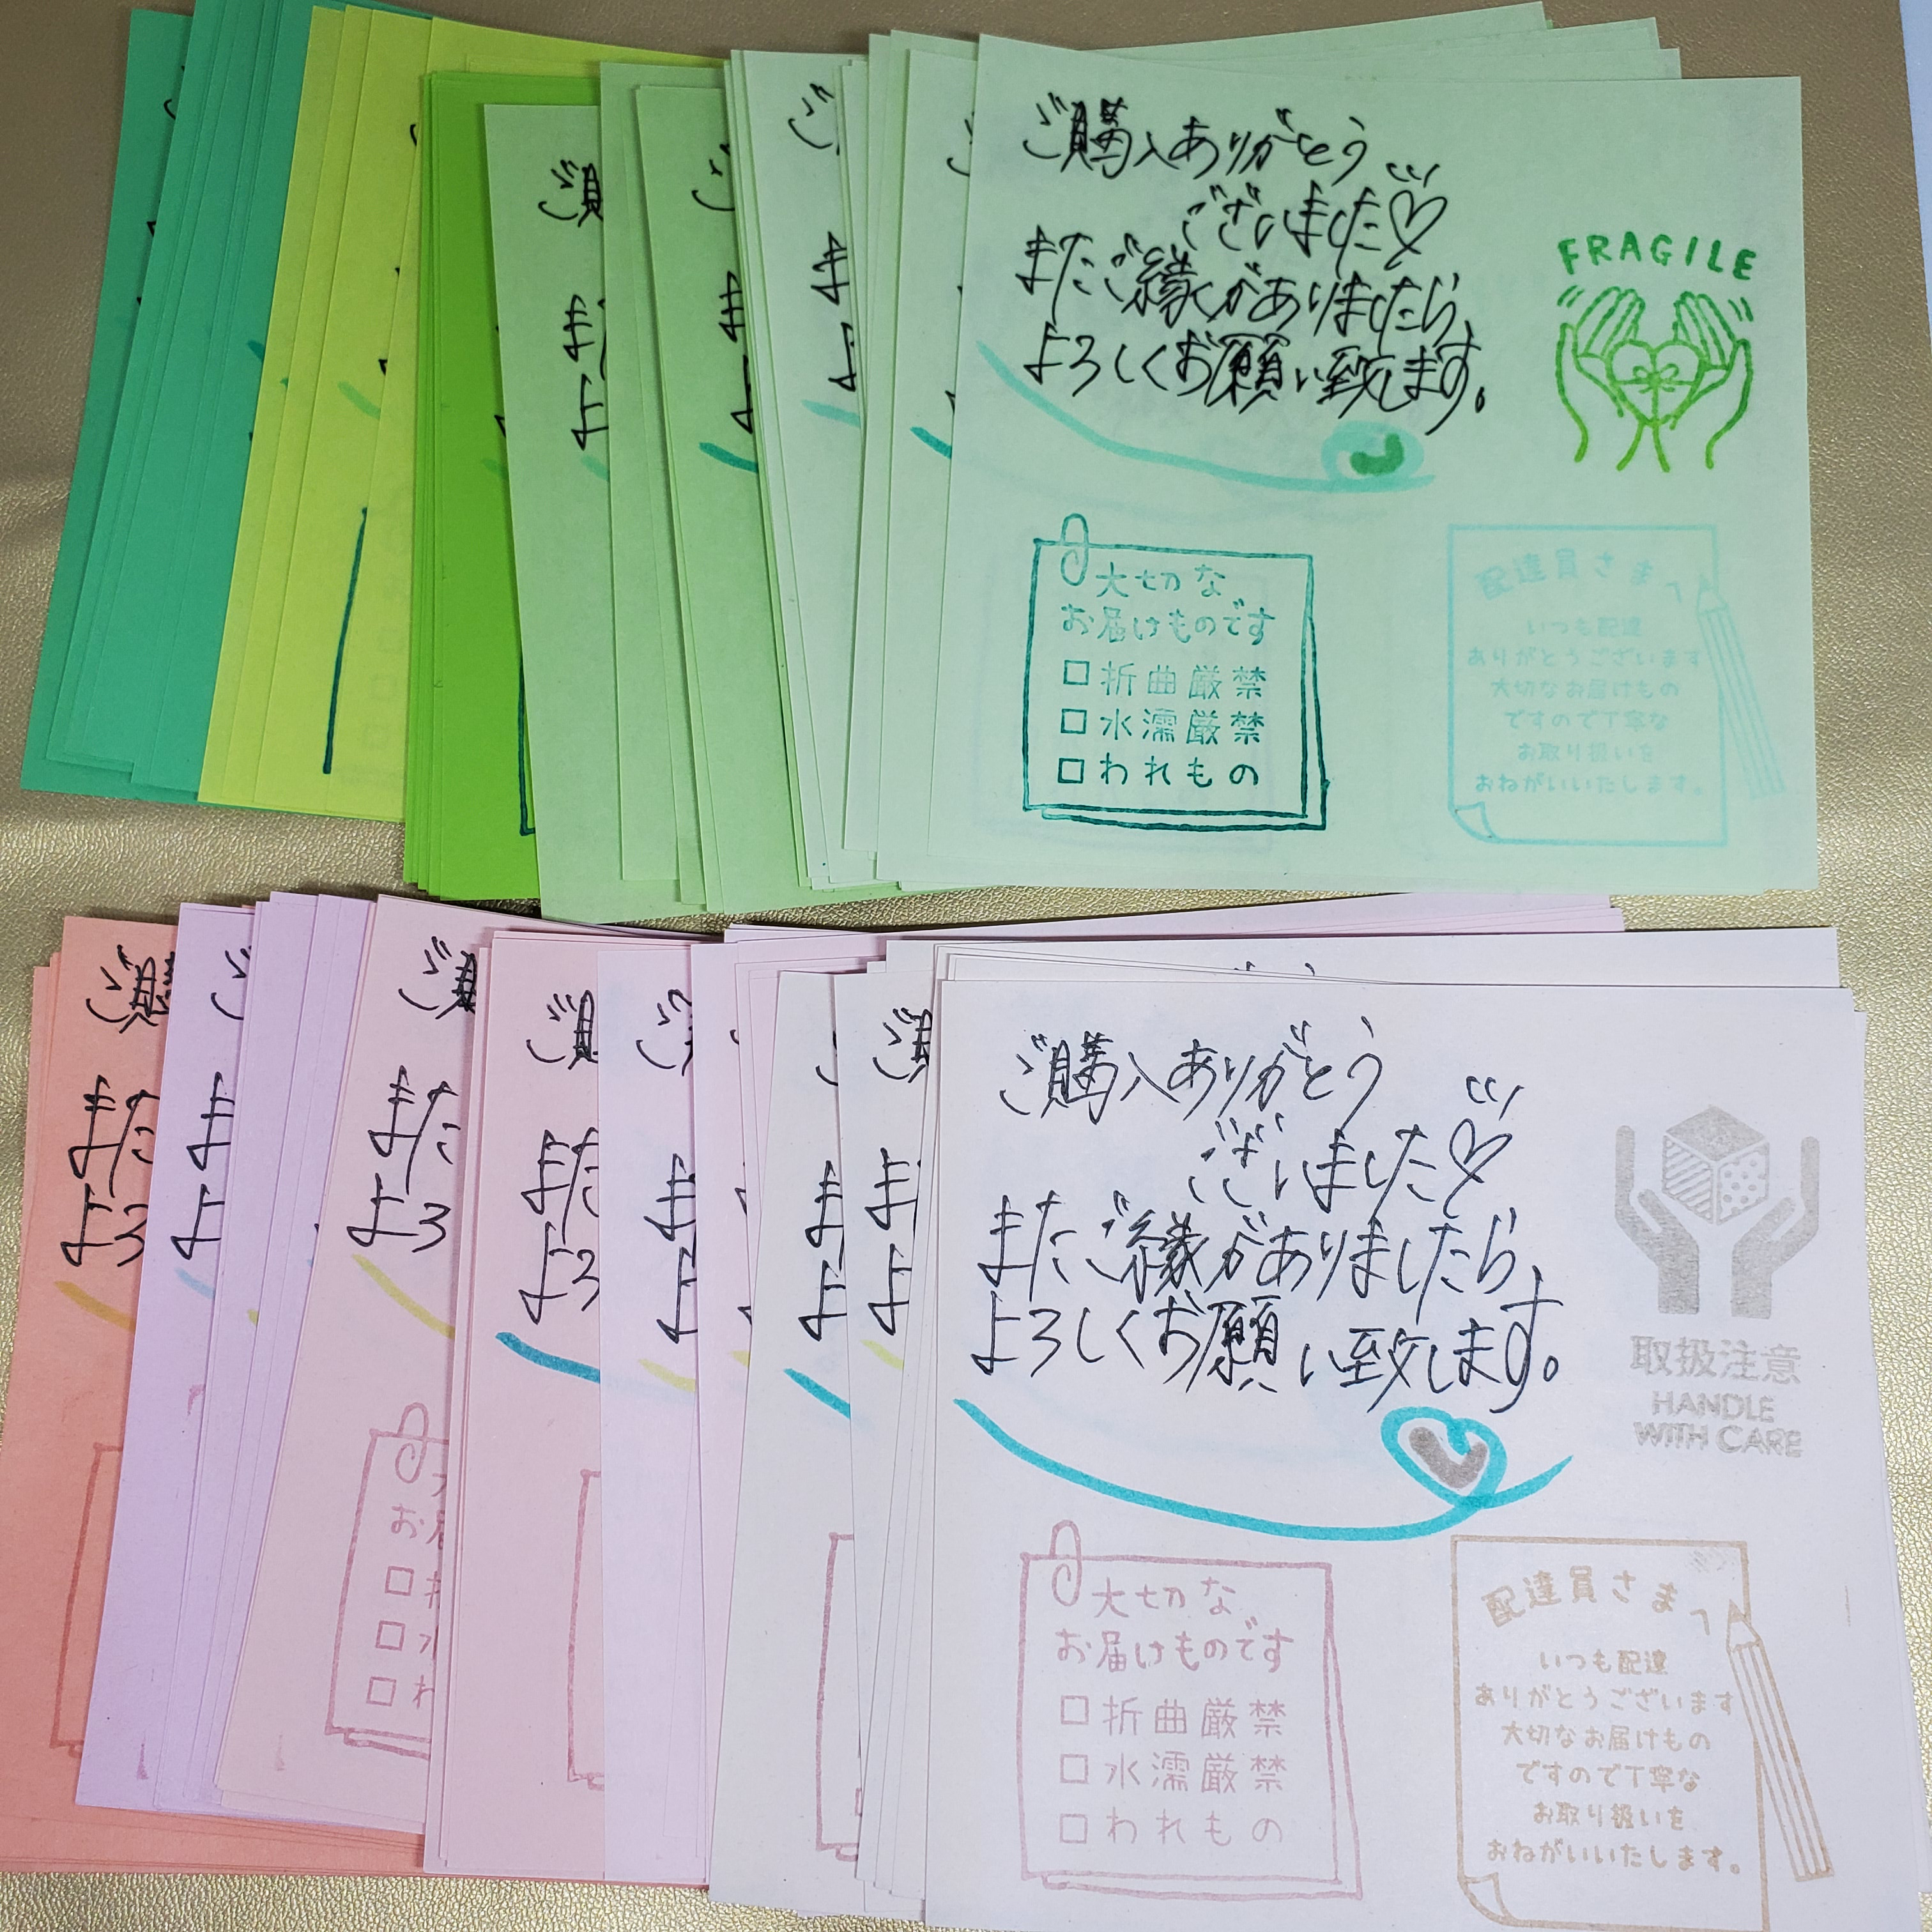 ご購入ありがとう
ございました♡
またご縁がありましたら、
よろしくお願い致します。
FRAGILE
大切な
お届けものです
□折曲厳禁
□水濡厳禁
□われもの
配達員さまへ
いつも配達
ありがとうございます
大切なお届けもの
ですので丁寧な
お取り扱いを
おねがいいたします。
ご購入ありがとう
ございました♡
またご縁がありましたら、
よろしくお願い致します。
取扱注意
HANDLE
WITH CARE
大切な
お届けものです
□折曲厳禁
□水濡厳禁
□われもの
配達員さまへ
いつも配達
ありがとうございます
大切なお届けもの
ですので丁寧な
お取り扱いを
おねがいいたします。